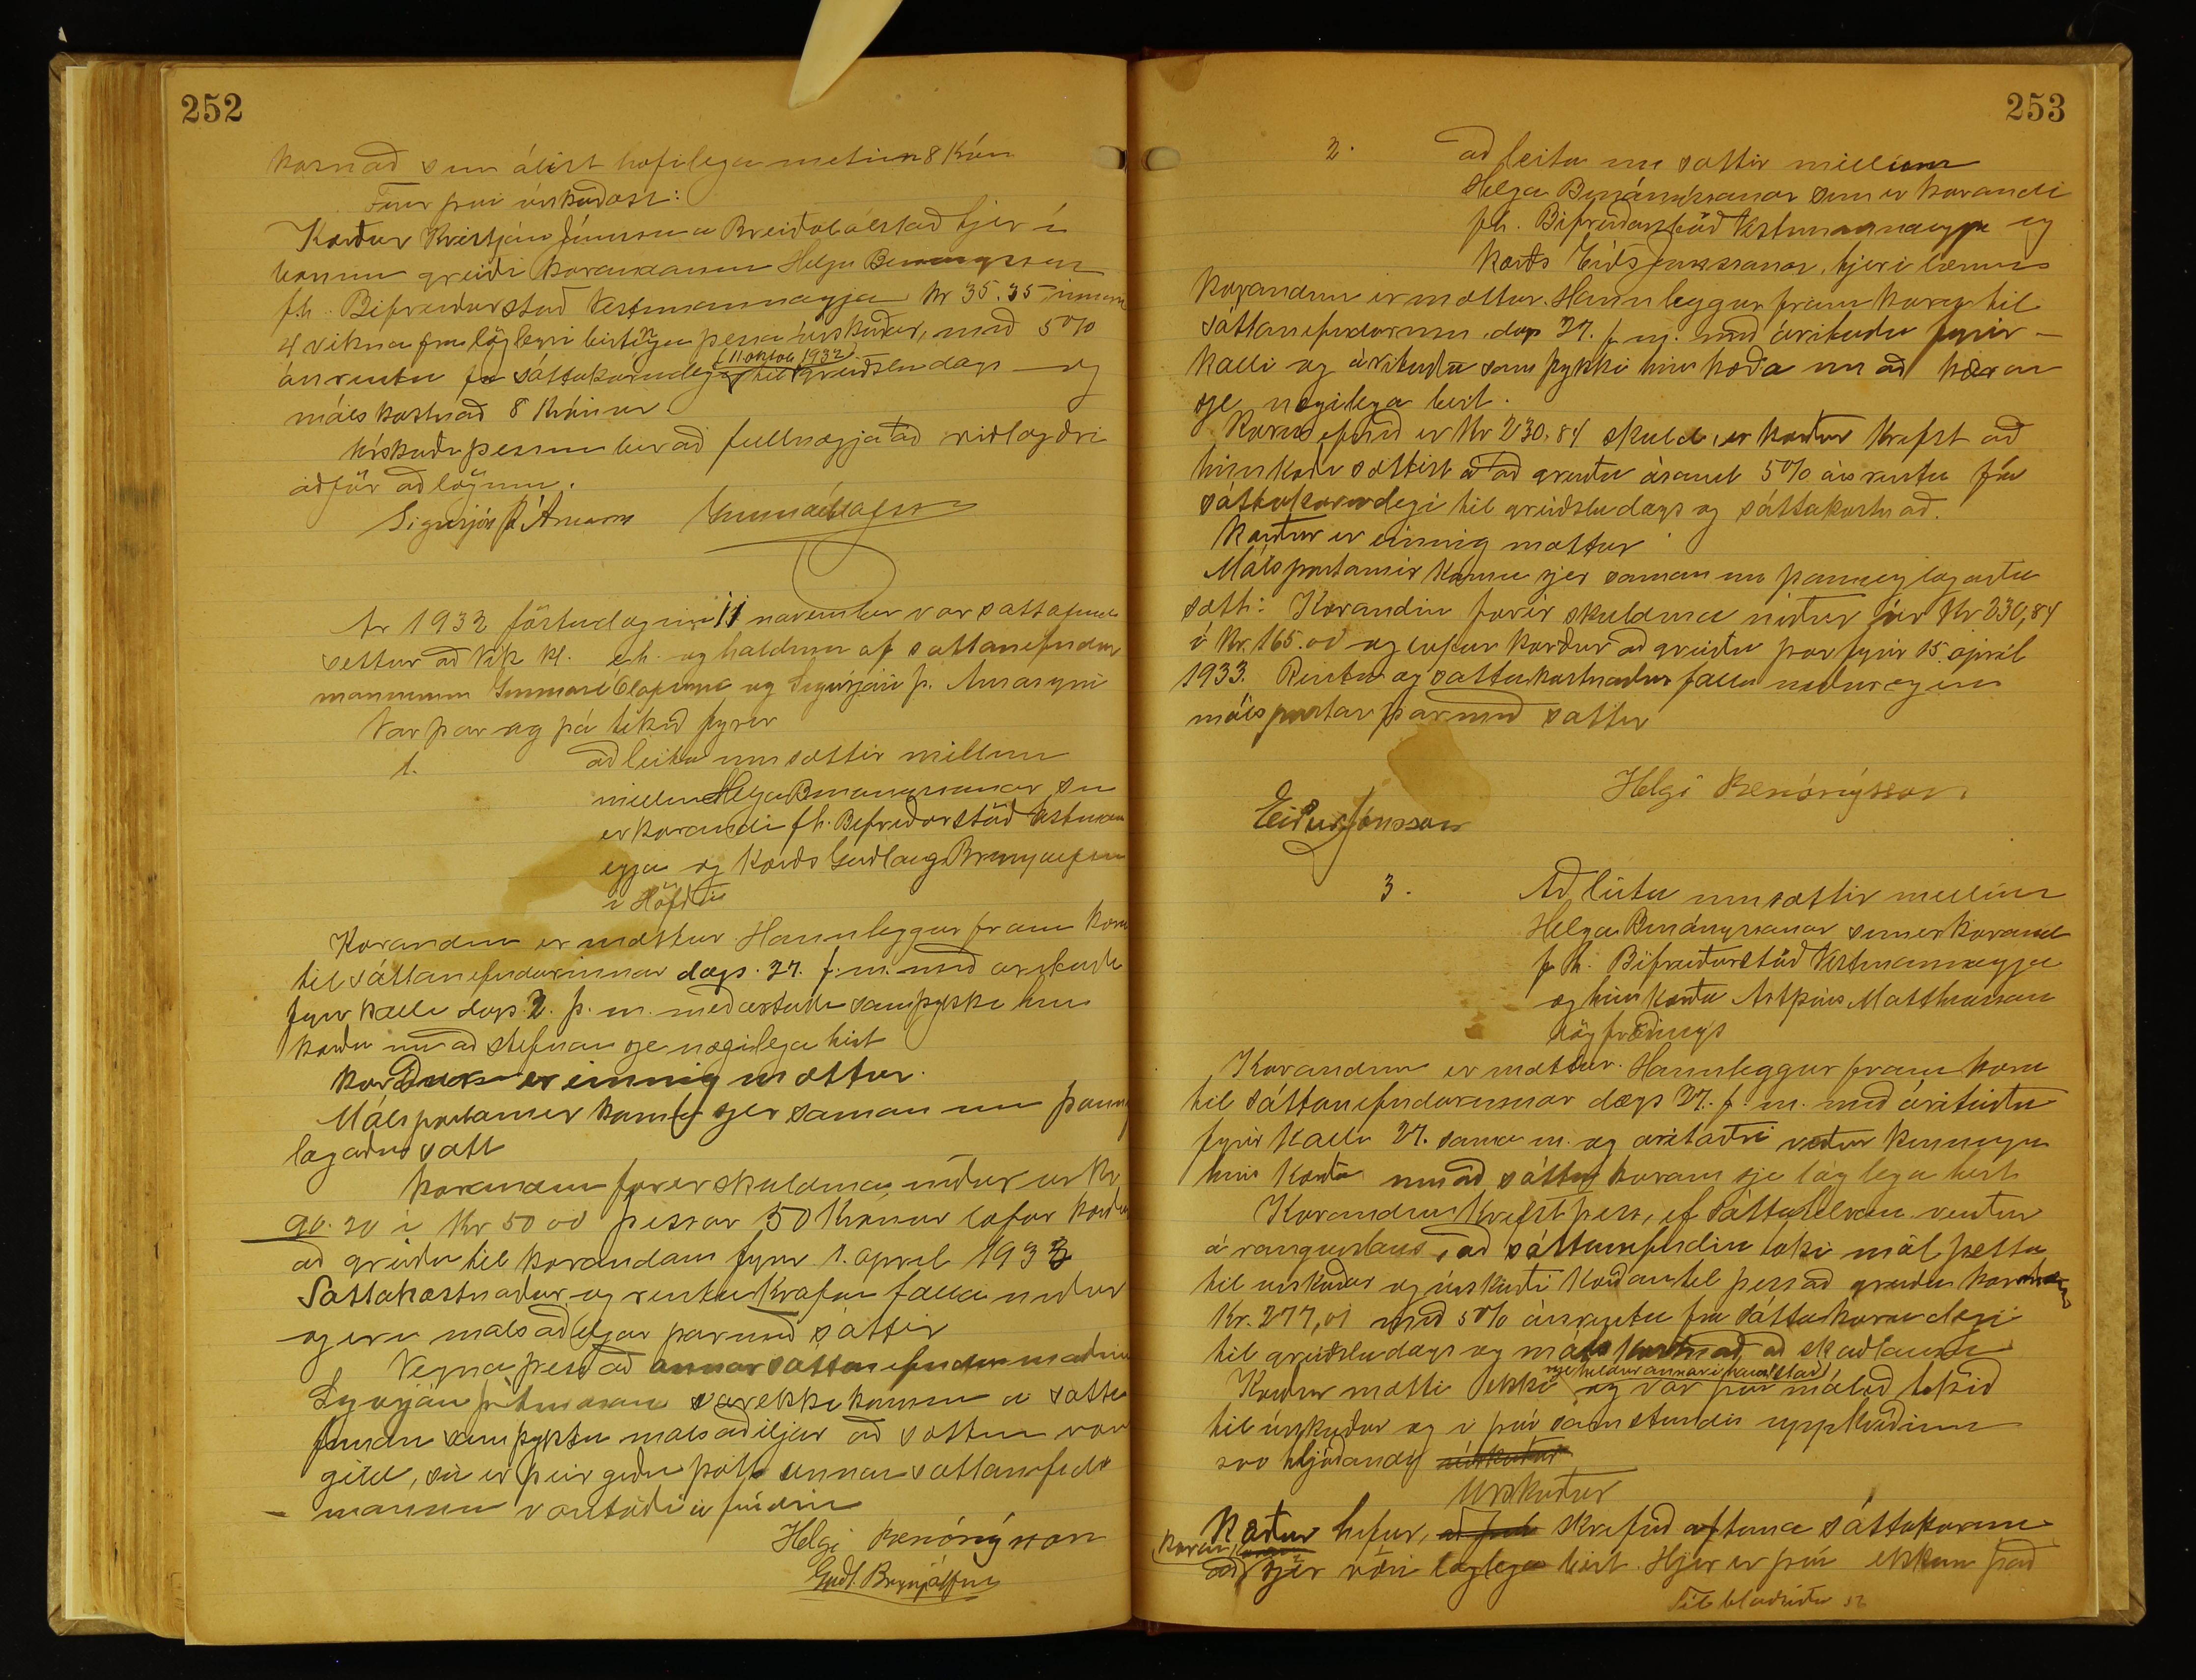 252
kosnað sem álist hæfilega metinn 8 Krón
Fyrir því úrskurðast:
Kærður Kristján Jónsson a Breiðabólstað hjer í
bænum greiði kærandanum Helga Benónýssyni
f.h. Bifreiðarstöð Vestmannaeyja kr 35.35 innan
4 vikna frá löglegri birtingu þessa úrskurðar, með 5%
ársrentu frá sáttakærudegi (11 oktob 1932) til greiðsludags og
málskostnað 8 Krónur.
Úrskurði þessum ber að fullnægja að viðlagðri
aðför að lögum.
Sigurjón Þ. Árnason Gunnar Ólafsson
Ár 1932 föstudaginn 11 november var sáttafundur
settur að Vík kl. e.h. og haldinn af sáttanefndar
mönnunum Gunnari Ólafssyni og Sigurjóni Þ. Árnasyni
Var þar og þá tekið fyrir
1. að leita um sættir millum
millum Helga Benónýssonar sem
er kærandi f.h. Bifreiðarstöð Vestmann
eyja og kærðs Guðlaugs Brynjólfssonar
í Höfða
Kærandinn er mættur. Hann leggur fram kæru
til sáttanefndarinnar dags. 27. f.m. með áritaðu
fyrirkalli dags. 2. þ.m. með áritaðu samþykki hins
kærða um að stefnan sje nægilega birt
Kærður er einnig mættur.
Málspartarnir komu sjer saman um þannig
lagaða sátt
Kærandinn færir skuldina niður úr Kr
90.20 í Kr 50 00 þessar 50 Krónur lofar kærður
að greiða til kærandans fyrir 1. apríl 1933
Sáttakostnaður og rentukrafan falla niður
og eru málsaðiljar þarmeð sáttir
Vegna þess að annar sáttanefndarmaðurinn
Sigurjón Þ. Árnason var ekki kominn á sátta
fundinn samþyktu málsaðiljar að sáttin væri
gild, sú er þeir gerðu þótt annan sáttanefndar
manninn vantaði á fundinn
Helgi Benónýsson
Guðl. Brynjólfsson
253
2. að leita um sættir millum
Helga Benónýssonar sem er kærandi
f.h. Bifreiðarstöð Vestmannaeyja og
kærðs Eiðs Jónssonar, hjer í bænum
Kærandinn er mættur. Hann leggur fram kæru til
sáttanefndarinnar dags 27. f.m. með árituðu fyrir-
kalli og árituðu samþykki hins kærða um að kæran
sje nægilega birt.
Kæruefnið er Kr 230,84 skuld, er kærður krefst að
hinn kærði sættist á að greiða ásamt 5% ársrentu frá
sáttakærudegi til greiðsludags og sáttakostnað.
Kærður er einnig mættur
Málspartarnir komu sjer saman um þannig lagaða
sátt: Kærandinn færir skuldina niður úr Kr 230,84
í Kr. 165.00 og lofar kærður að greiða þær fyrir 15. apríl
1933. Renta og sáttakostnaður falla niður og eru
málspartar þarmeð sáttir
Helgi Benónýsson.
Eiður Jónsson
3. Að leita um sættir millum
Helga Benónýssonar sem er kærandi
f.h. Bifreiðarstöð Vestmannaeyja
og hins kærða Ástþórs Matthíassonar
lögfræðings
Kærandinn er mættur. Hann leggur fram kæru
til sáttanefndarinnar dags 27. f.m. með áritaðu
fyrirkalli 27. sama m. og áritaðri viðurkenningu
hins kærða um að sáttakæran sje löglega birt
Kærandinn krefst þess, ef sáttatilraun verður
árangurslaus, að sáttanefndin taki mál þetta
til úrskurðar og úrskurði kærðan til þess að greiða kæranda
Kr. 277,01 með 5% ársrentu frá sáttakærudegi
til greiðsludags og málskostnað að skaðlausu
Kærður mætti ekki nje heldur annar í hans stað og var þá málið tekið
til úrskurðar og í því samstundis uppkveðinn
svo hljóðandi úrskurður
Úrskurður
Kærður hefur, skrifað aftana sáttakæruna
að sjer væri löglega birt. Hjer er því ekkun það
Til blaðsíðu 52